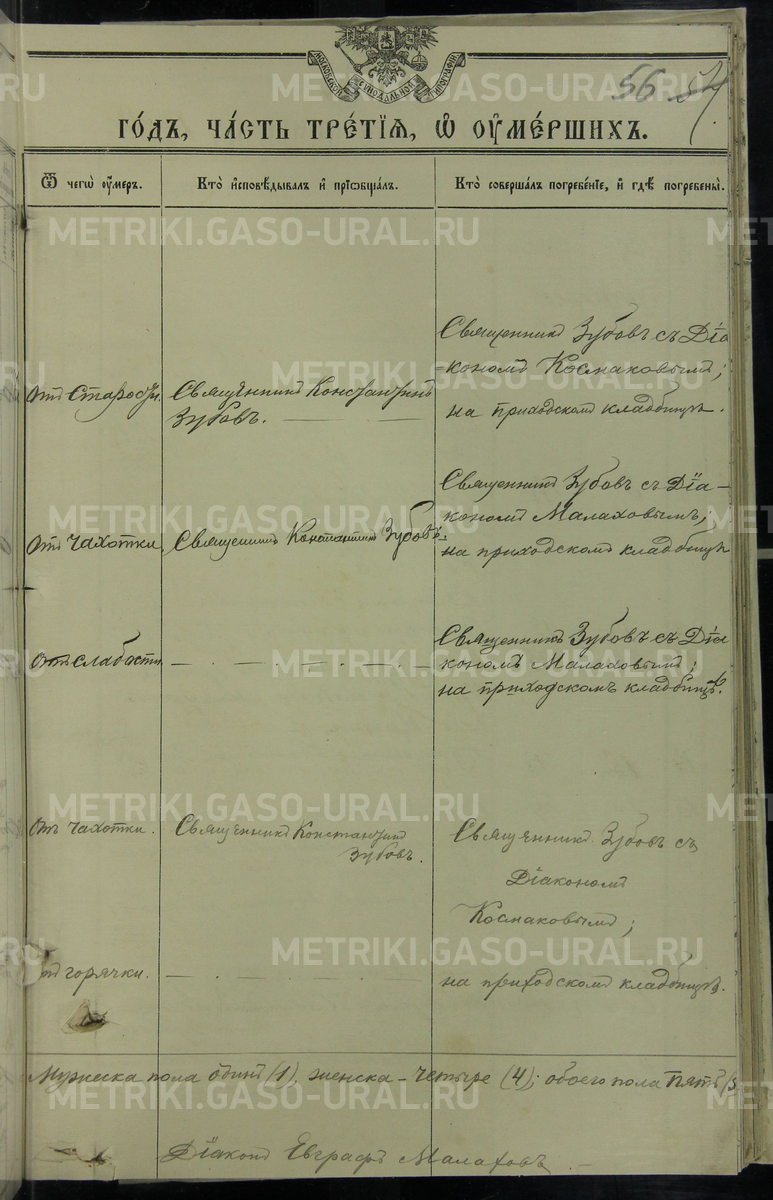 МОСКОВСКОЙ СѴНОДАЛЬНОЙ ТИПОГРАФІИ
56 57
ГО́ДЪ, ЧА́СТЬ ТРЕ́ТІѦ, Ѡ҆ ОУ҆МЕ́РШИХЪ.
Ѿ чегѡ̀ оу҆́меръ.
Кто̀ и҆сповѣ́дывалъ и҆ прїѡбща́лъ.
Кто̀ соверша́лъ погребе́нїе, и҆ гдѣ̀ погребены̀.
Отъ старости.
Священникъ Константинъ
Зубовъ.
Священникъ Зубовъ съ Діа
кономъ Космаковымъ;
на приходскомъ кладбищѣ.
Отъ чахотки.
Священникъ Константинъ Зубовъ.
Священникъ Зубовъ съ Діа-
кономъ Малаховымъ;
на приходскомъ кладбищѣ
Отъ слабости
Священникъ Зубовъ съ Діа
кономъ Малаховымъ;
на приходскомъ кладбищѣ.
Отъ чахотки.
Священникъ Константинъ
Зубовъ.
Священникъ Зубовъ съ
Діакономъ
Космаковымъ;
отъ горячки.
на приходскомъ кладбищѣ.
Мужеска пола одинъ (1), женска - четыре (4); обоего пола пять (5
Діаконъ Евграфъ Малаховъ
METRIKI.GASO-URAL.RU